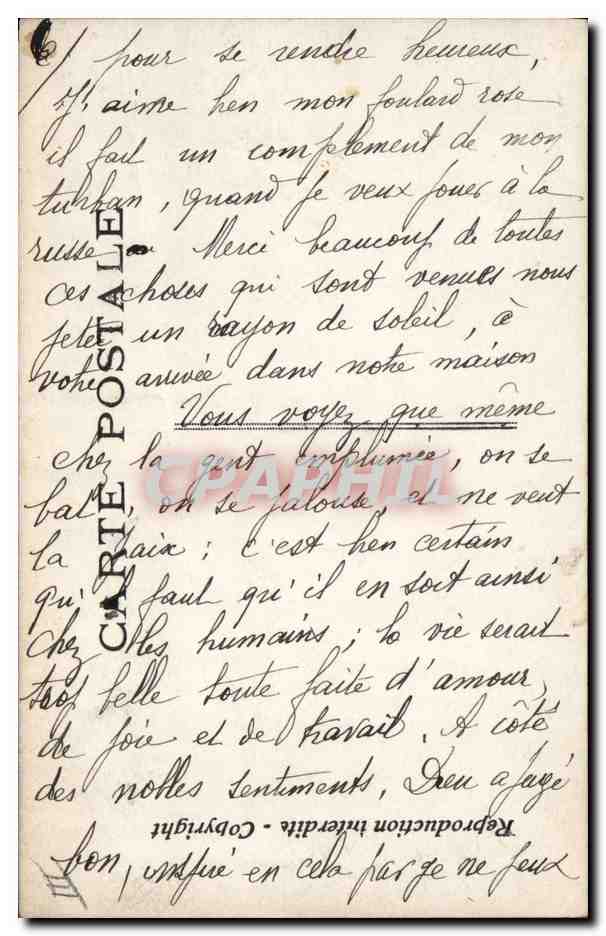 pour se rendre heureux,
J'aime bien mon foulard rose
il fait un complement de mon
turban, quand je veux jouer à la
russe. Merci beaucoup de toutes
ces choses qui sont venues nous
jeter un rayon de soleil, à
votre arrivée dans notre maison
Vous voyez que même
chez la gent emplumée, on se
bat, on se jalouse, et ne veut
la paix ; c'est bien certain
qu'il faut qu'il en soit ainsi
chez les humains ; la vie serait
trop belle toute faite d'amour,
de joie et de travail. A côté
des nobles sentiments, Dieu a jugé
bon, inspiré en cela par je ne peux
III
CARTE POSTALE
Reproduction interdite - Copyright
CPAPHIL